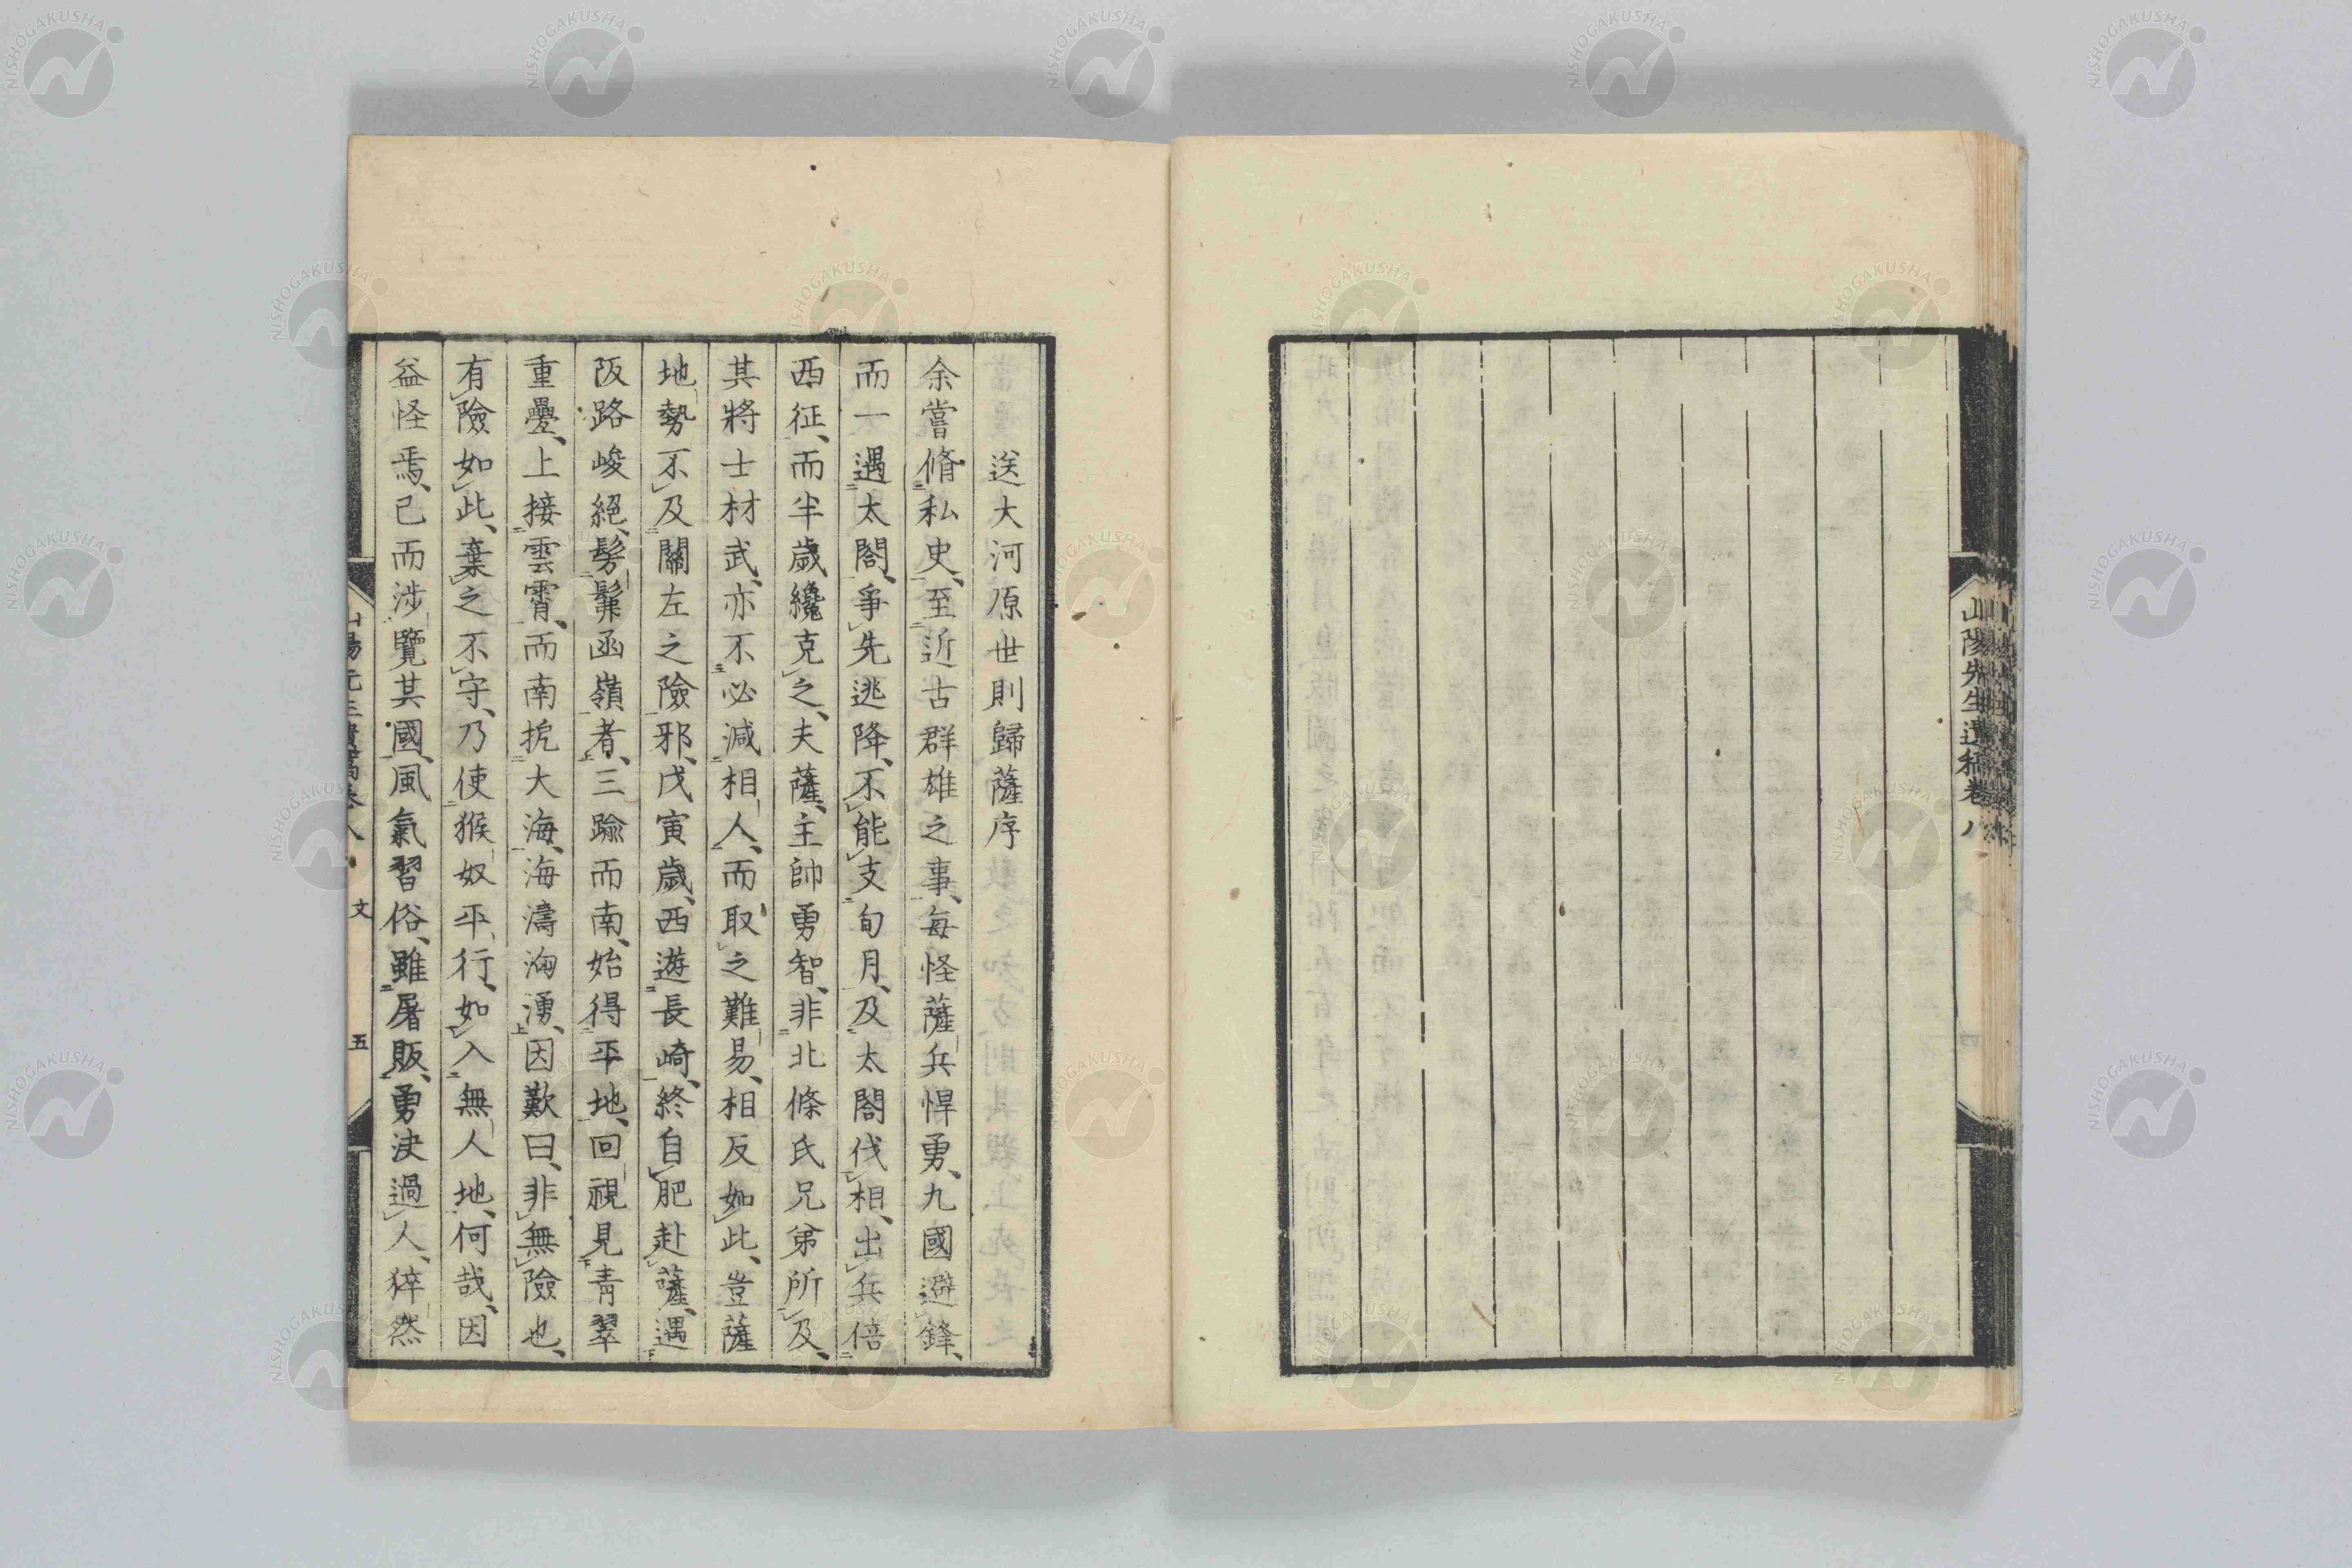 山陽先生遺稿卷八
送大河原世則歸薩序
余嘗脩私史、至近古群雄之事、每怪薩兵悍勇、九國避鋒、
而一遇太閤、爭先逃降、不能支旬月、及太閤伐相、出兵倍
西征、而半歲纔克之、夫薩、主帥勇智、非北條氏兄弟所及、
其將士材武、亦不必減相人、而取之難易、相反如此、豈薩
地勢不及關左之險邪、戊寅歲、西遊長崎、終自肥赴薩、遇
阪路峻絕、髣髴函嶺者、三踰而南、始得平地、回視見青翠
重疊、上接雲霄、而南扼大海、海濤洶湧、因歎曰、非無險也、
有險如此、棄之不守、乃使猴奴平行、如入無人地、何哉、因
益怪焉、已而涉覽其國、風氣習俗、雖屠販、勇決過人、猝然
文
五
NISHOGAKUSHA